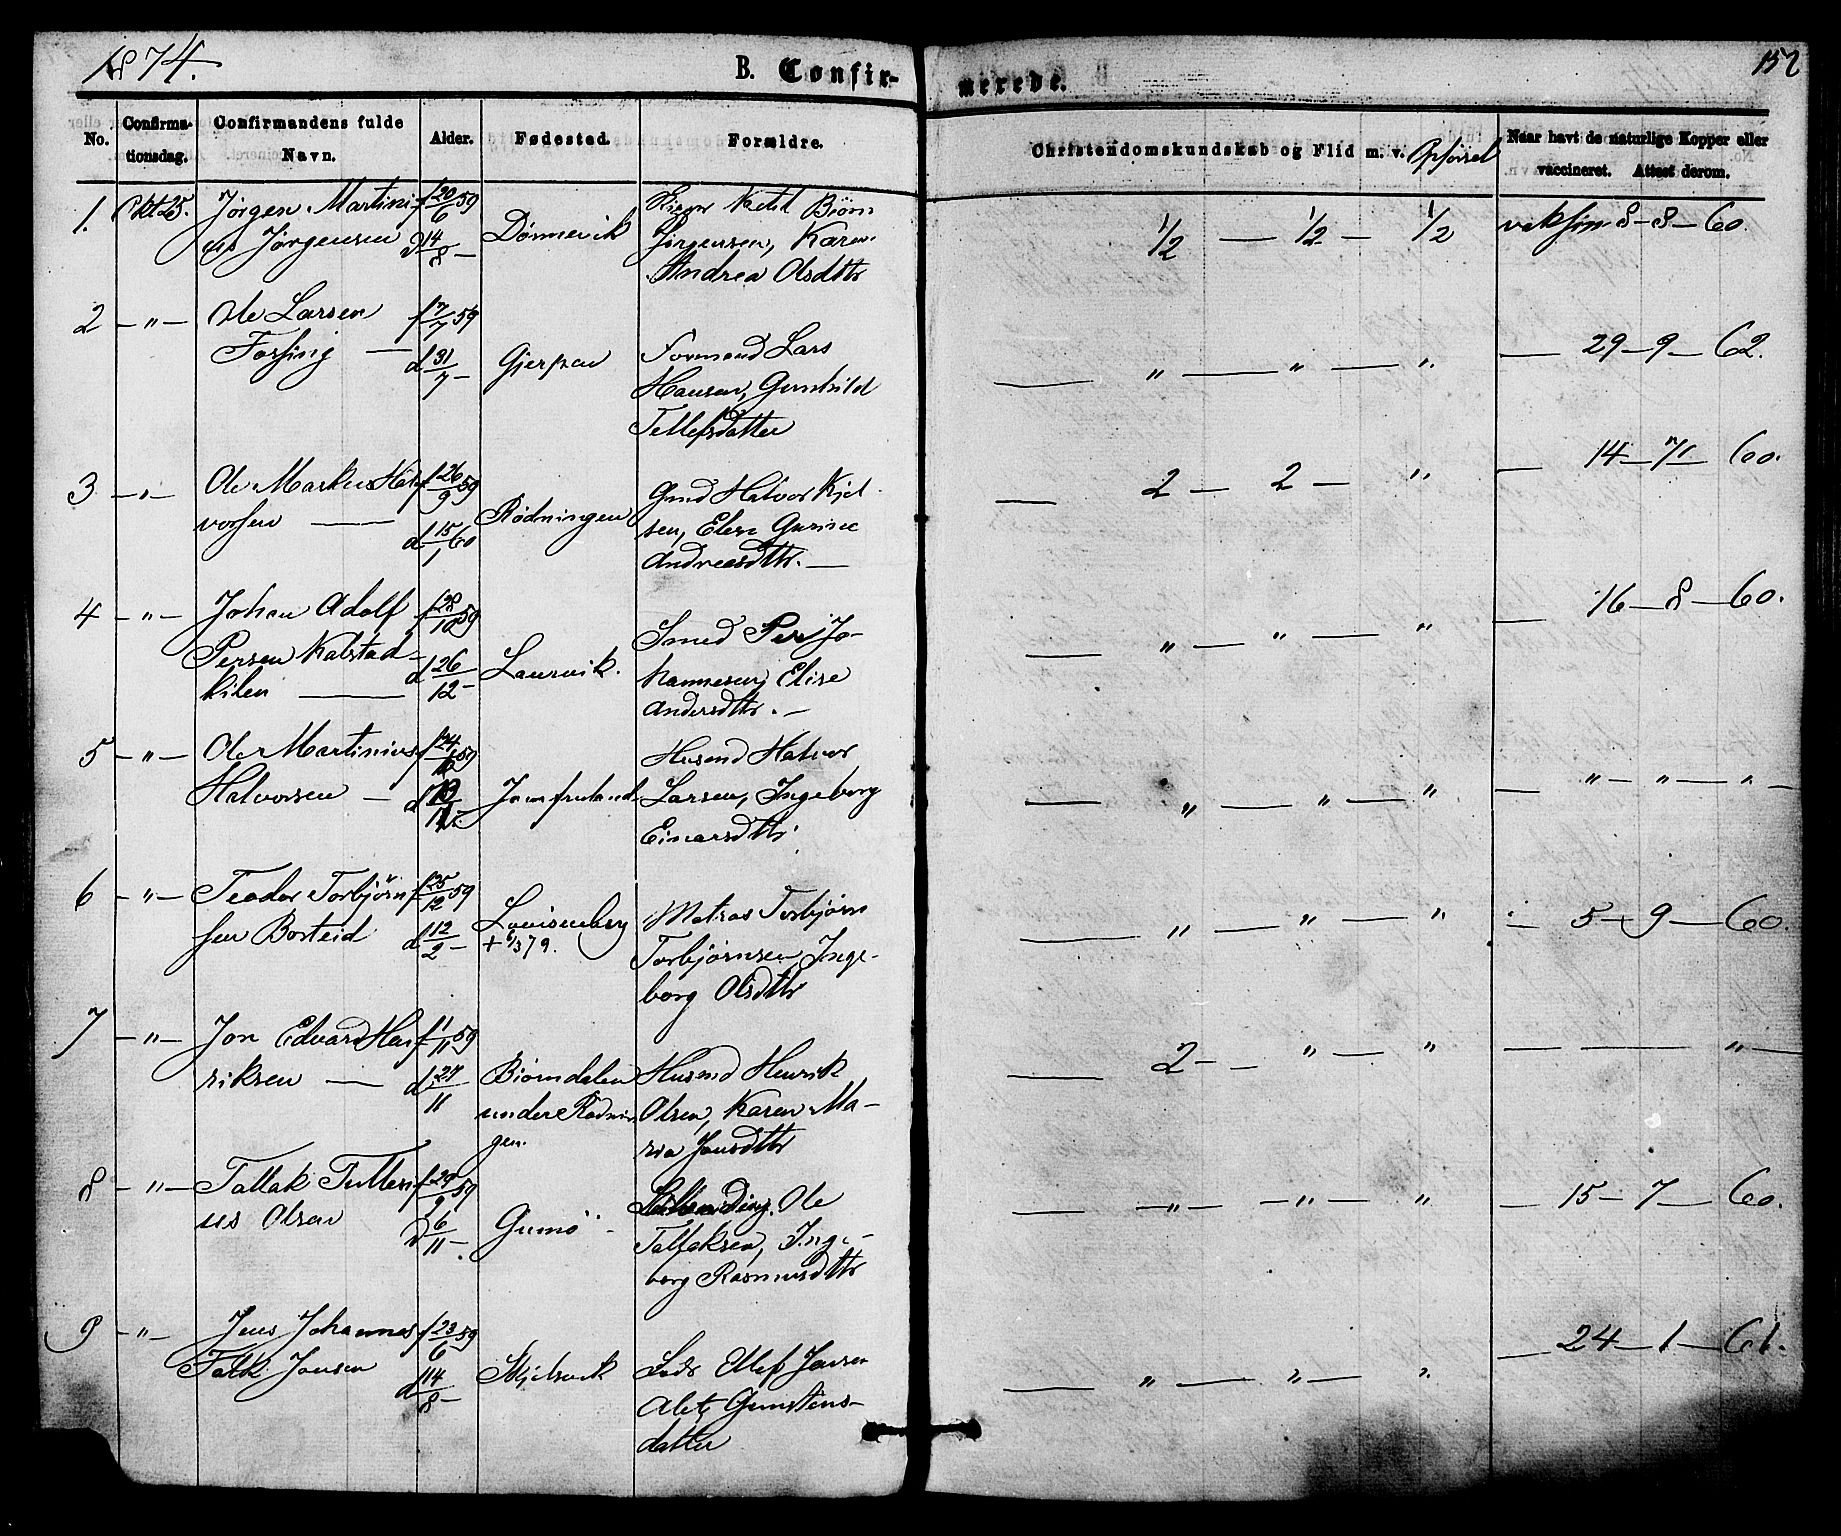 1874.
B. Confir-
merede.
152
No.
Confirma-
tionsdag.
Confirmandens fulde
Navn.
Alder.
Fødested.
Forældre.
Christendomskundskab og Flid m. v. Opførsel
Naar havt de naturlige Kopper eller
vaccineret. Attest derom.
1. Okt 25. Jørgen Martini- f 20/6 59
us Jørgensen d 14/8 –
Dønnevik
Bjørn
Jørgensen, Karen
Andrea Olsdttr
1/2 — 1/2 — 1/2
vaksin 8–8–60.
2 –"– Ole Larsen f 7/7 59
Forsing — d 31/7 –
Gjerpen
Formand Lars
Hansen, Gunhild
Tellefsdatter
— " — " — ".
— 29–9–62.
3 –"– Ole Markus Hal- f 26/9 59
vorsen — d 15/1 60
Rødningen
Gmd Halvor Kjel-
sen, Elen Gurine
Andreasdttr. —
— 2 — 2 — "
— 14–7–60.
4 –"– Johan Adolf f 28/10 59
Persen Kalstad- d 26/12 –
kilen —
Laurvik.
Smed Per Jo-
hannesen, Elise
Andersdttr. —
— " — " — "
— 16–8–60.
5 –"– Ole Martinius f 24/ 59
Halvorsen — d
Jomfruland
Husmd Halvor
Larsen, Ingeborg
Einarsdttr.
— " — " — "
— " — " — " —
6 –"– Teodor Torbjørn- f 25/12 59
sen Borteid d 12/2 –
Louisenberg
+ 6/3 79.
Matros Torbjørn
Torbjørnsen, Inge-
borg Olsdttr
— " — " — "
– 5–9–60.
7 –"– Jon Edvard Hen- f 1/11 59
riksen — d 27/11
Bjørndalen
under Rødnin-
gen.
Husmd Henrik
Olsen, Karen Ma-
ria Jonsdttr
— 2 — " — "
— — " —
8 –"– Tallak Tellen- f 29/9 59
ses Olsen d 6/11 –.
Gumø –
Ole
Tallaksen, Inge-
borg Rasmusdttr
— " — " — "
— 15–7–60.
9 –"– Jens Johannes f 23/6 59
Falk Jensen d 14/8 –
Skjelsvik
Lods Ellef Jensen
Alet Gunstens-
datter
— " — " — ".
— 24–1–61.